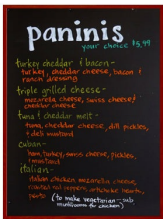 paninis
your choice $5.99
turkey cheddar & bacon -
turkey, cheddar cheese, bacon &
ranch dressing
triple grilled cheese -
mozzarella cheese, swiss cheese &
cheddar cheese
tuna & cheddar melt -
tuna, cheddar cheese, dill pickles,
& deli mustard
cuban -
ham, turkey, swiss cheese, pickles,
& mustard
italian -
italian chicken mozzarella cheese,
roasted red peppers, artichoke hearts,
pesto (to make vegetarian - sub
mushrooms for chicken)